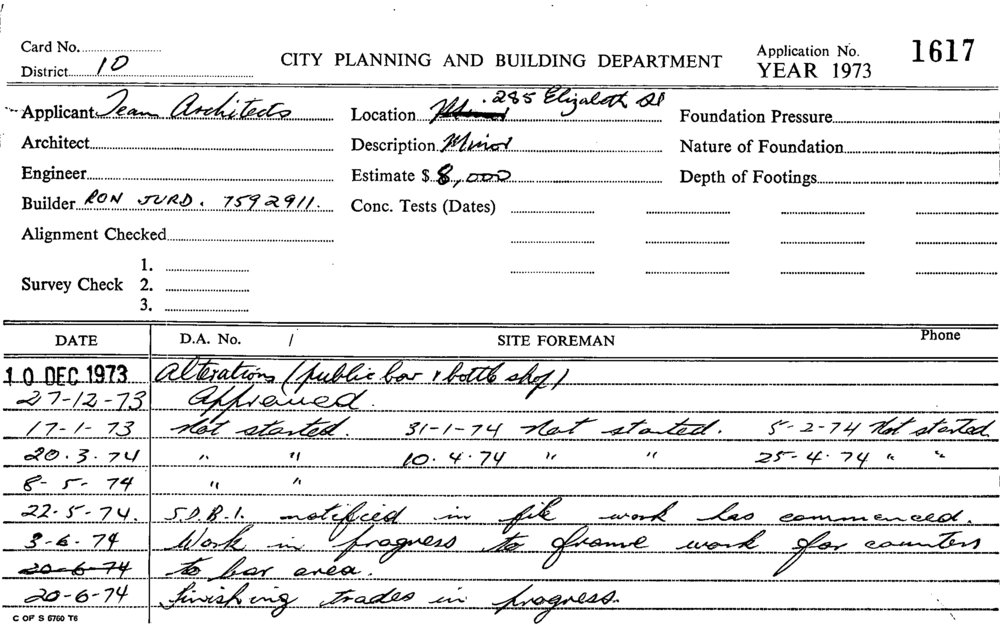 Card No.
CITY PLANNING AND BUILDING DEPARTMENT
Application No. 1617
District 10
YEAR 1973
Applicant Team Architects
Location 285 Elizabeth St
Foundation Pressure
Architect
Description Minor
Nature of Foundation
Engineer
Estimate $ 8,000
Depth of Footings
Builder RON JURD. 7592911.
Conc. Tests (Dates)
Alignment Checked
Survey Check 1.
2.
3.
DATE D.A. No. / SITE FOREMAN Phone
10 DEC 1973 Alterations (public bar & bottle shop)
27-12-73 Approved.
17-1-73 Not started. 31-1-74 Not started. 5-2-74 Not started.
20.3.74 " " 10.4.74 " " 25-4.74 " "
8-5-74 " "
22.5-74. S.D.B.I. notified in file work has commenced.
3-6.74 Work in progress to frame work for counters
20-6-74 to bar area.
20-6-74 Finishing trades in progress.
C OF S 5760 T6